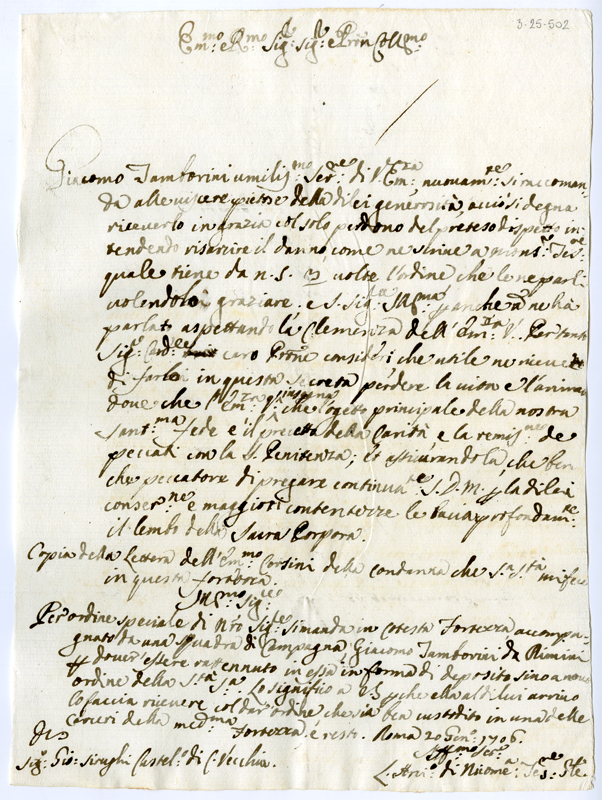 3-25-502
Em:mo e R:mo Sig: Sig: e Pron Coll:mo
Giacomo Tamborini umiliss:mo Ser:re di V. Em:za, nuovam:te si raccoman
da alle viscere pietose della di lei generosità, acciò si degna
riceverlo in grazia col solo perdono del preteso dispetto in-
tendendo risarcire il danno come ne scrive a mons:
quale tiene da N. S. 3 volte l'ordine che le ne parli
volendolo graziare. e S. Sig: anche ne hà
parlato aspettando la Clemenza dell' Em: V. Per tanto
Sig: Card:le caro Prone consideri che utile ne riceve
di farlo in questa secreta perdere la vita e l'anima
dove che l'Em:za V. che l'ogetto principale della nostra
Sant:ma Fede è il precetto della Carità e la remis:ne de
peccati con la S. Penitenza; et assicurandola, che ben
che peccatore di pregare continua:te S. D. M. p la di lei
conser:ne e maggiori contentezze le bacia profondam:te
il lembo della Sacra Porpora.
Copia della Lettera dell' Em:mo Corsini della condanna che S.a S.tà mi fece
in questa fortezza.
Per ordine speciale di Nro Sig:re si manda in cotesta Fortezza accompa-
gnato da una squadra di Campagna, Giacomo Tamborini da Rimini
p dover essere rattenuto in essa in forma di deposito sino a novo
ordine della S.tà Sa. Lo significo a VS p che ella al di lui arrivo
lo faccia ricevere col dar ordine che sia ben custodito in una delle
carceri della med:ma Fortezza, e resto. Roma 20 Gen:o 1706.
Sig: Gio: Castel: di C. Vecchia.